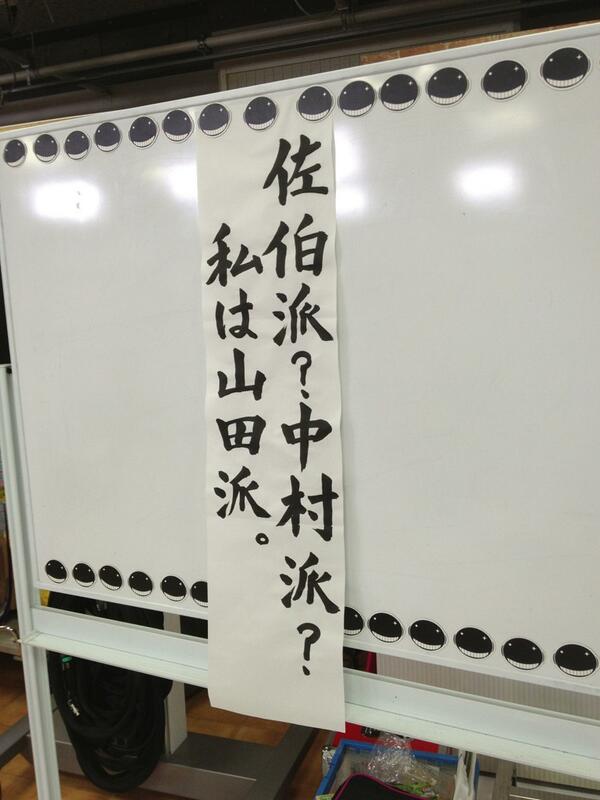 佐伯派？中村派？
私は山田派。